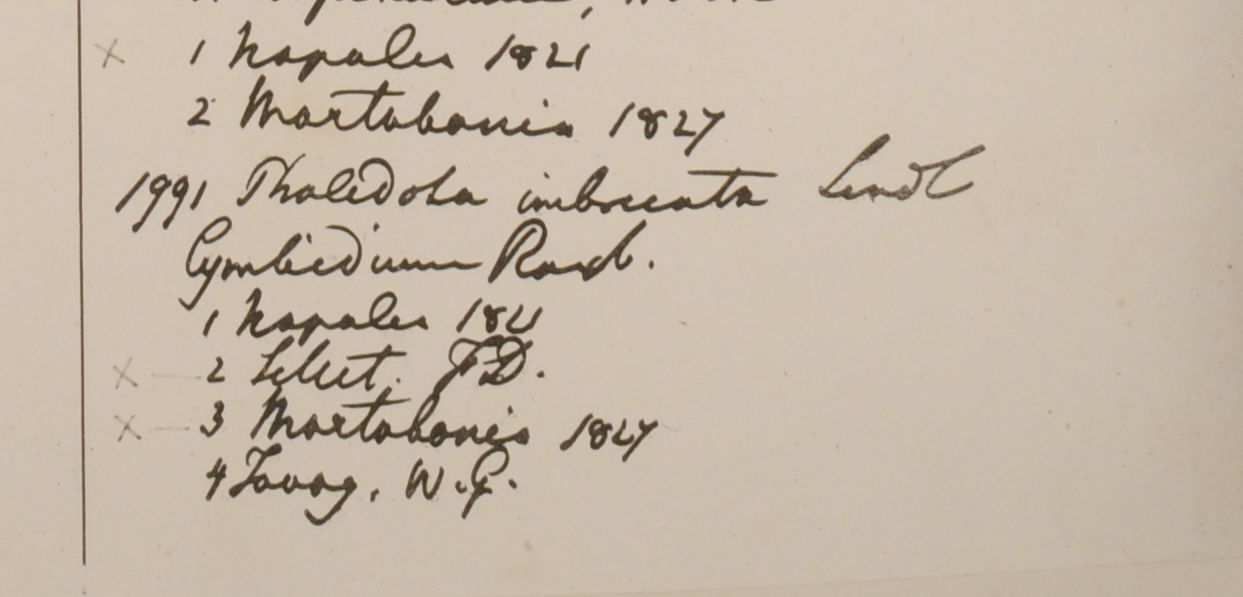 × 1 Napalia 1821
2 Martabania 1827
1991 Pholidota imbricata Lindl
Cymbidium Roxb.
1 Napalia 1821
× 2 Silhet. F D.
× 3 Martabania 1827
4 Tavoy, W. G.